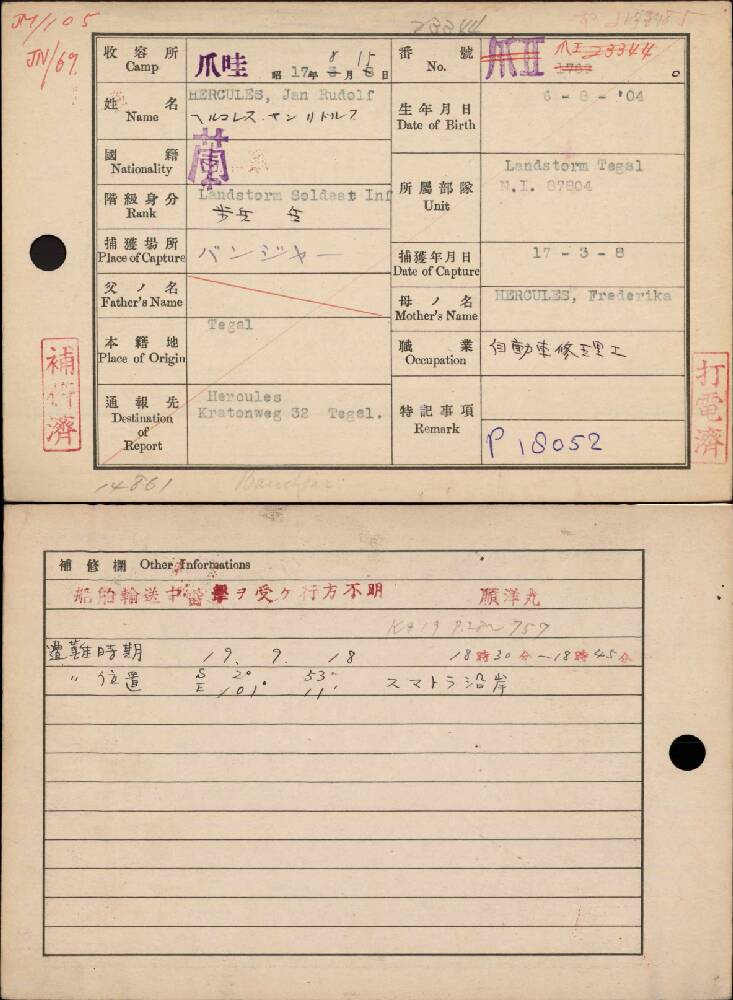 JM/105
JN/69
23344
收容所
Camp
爪哇
昭17年 8月 15日
番號
No.
爪II
爪II 23344
1763
姓名
Name
HERCULES, Jan Rudolf
ヘルコレス ヤン リドルフ
生年月日
Date of Birth
6 - 8 - '04
國籍
Nationality
蘭
階級身分
Rank
Landstorm Soldaat Inf
步兵 兵
所屬部隊
Unit
Landstorm Tegal
N.I. 87804
捕獲場所
Place of Capture
バンジャー
捕獲年月日
Date of Capture
17 - 3 - 8
父ノ名
Father's Name
母ノ名
Mother's Name
HERCULES, Frederika
本籍地
Place of Origin
Tegal
職業
Occupation
自動車修理工
通報先
Destination
of
Report
Hercules
Kratonweg 32 Tegal.
特記事項
Remark
P 18052
補修濟
打電濟
14861
Bandjar
補修欄 Other Informations
船舶輸送中雷擊ヲ受ケ行方不明 順洋丸
遭難時期 19. 9. 18 18時30分－18時45分
〃 位置 S 2° 53'
E 101° 11' スマトラ沿岸